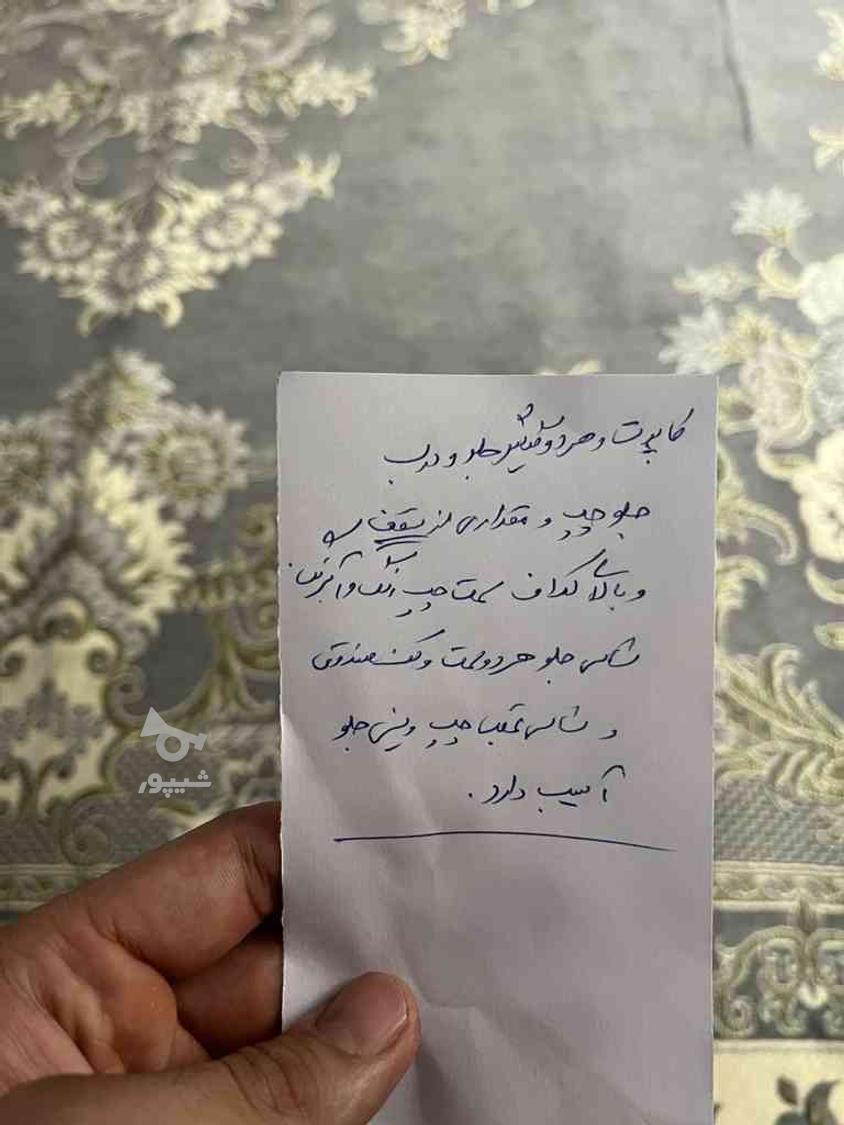 کاپوت و هر دو گلگیر جلو و درب
جلو چپ و مقداری از سقف
و بالای گلگیر سمت چپ رنگ و
شاسی جلو هر دو سمت و کف صندوق
و شاسی عقب چپ و سینی جلو
آسیب دارد .
شیپور